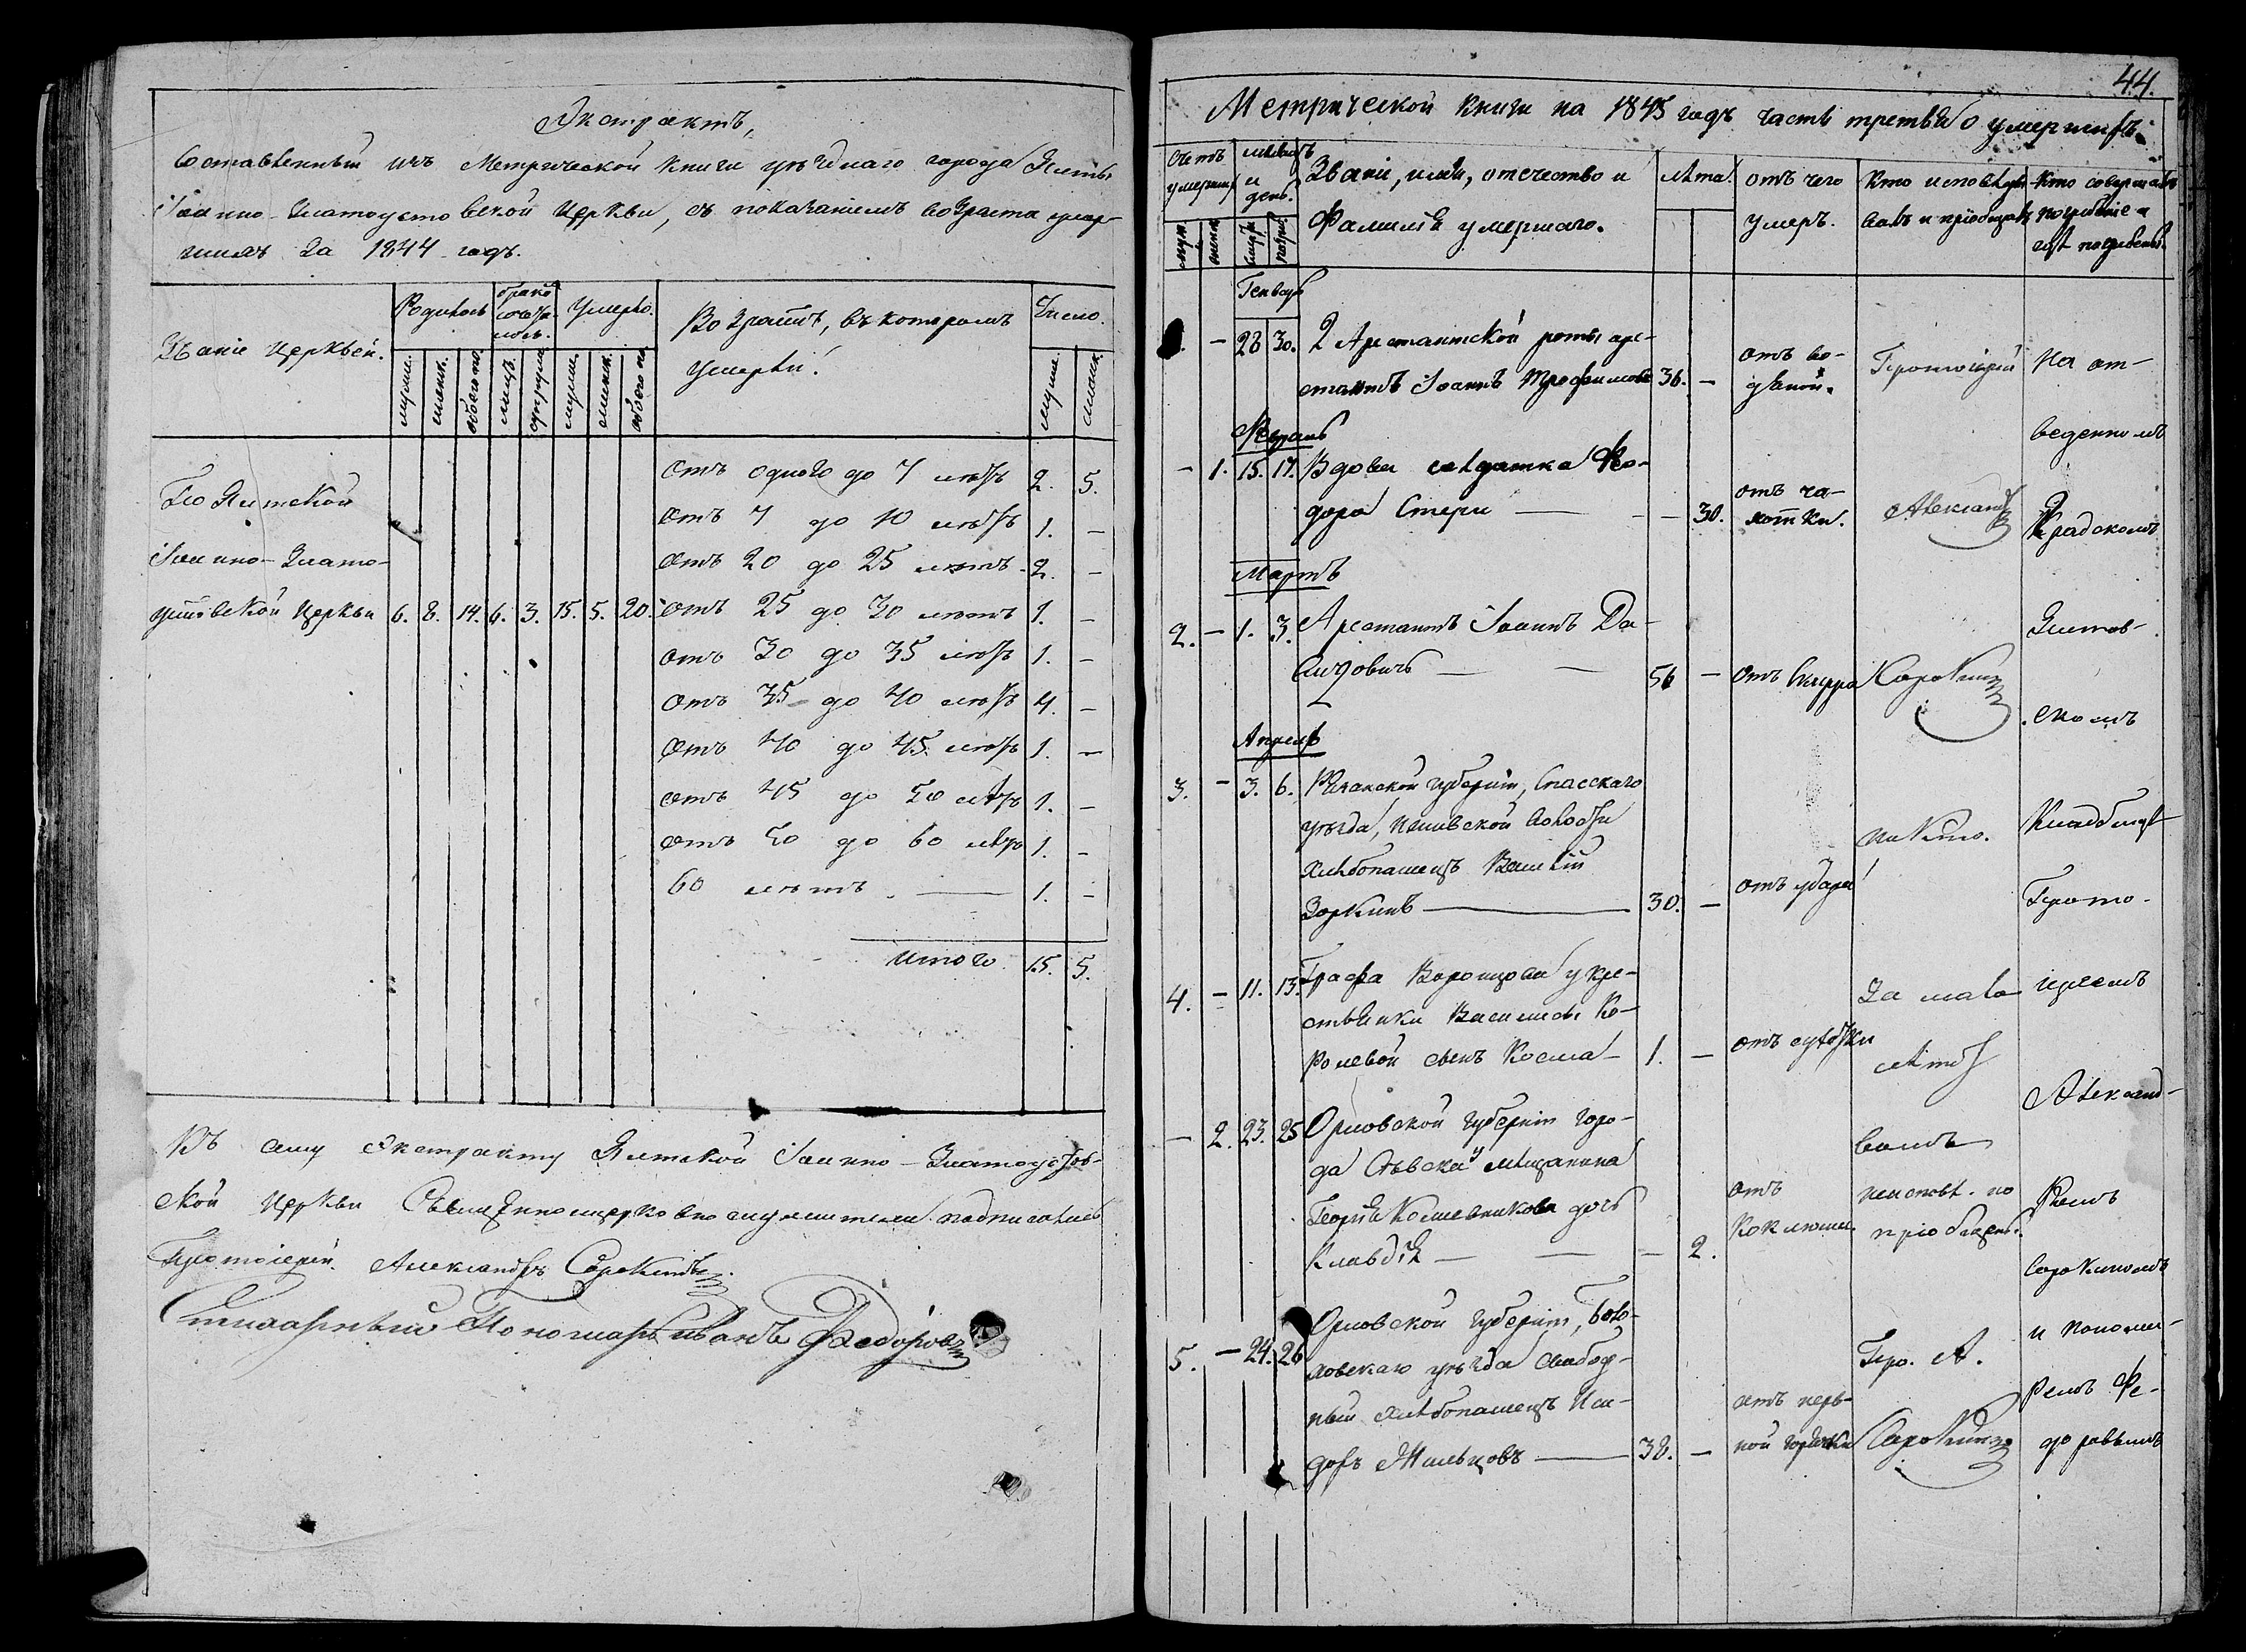 Экстрактъ,
Составленный изъ Метрической книги уѣзднаго города Ялты
Іоанно-Златоустовской Церкви, съ показаніемъ возраста умер-
шимъ за 1844 годъ.
Званіе Церквей.
Родилось
брако
сочета-
лось.
Умерло.
Возрастъ, въ которомъ
умерли.
Число.
мужск.
женск.
обоего по.
лицъ.
супруж.
мужск.
женск.
обоего по.
мужск.
женск.
По Ялтской
Іоанно-Злато-
устовской Церкви 6. 8. 14. 6. 3. 15. 5. 20.
Отъ одного до 7 лѣтъ 2. 5.
Отъ 7 до 10 лѣтъ 1. -
Отъ 20 до 25 лѣтъ 2. -
Отъ 25 до 30 лѣтъ 1. -
Отъ 30 до 35 лѣтъ 1. -
Отъ 35 до 40 лѣтъ 4. -
Отъ 40 до 45 лѣтъ 1. -
Отъ 45 до 50 лѣтъ 1. -
Отъ 50 до 60 лѣтъ 1. -
60 лѣтъ 1. -
Итого 15. 5.
Къ сему Экстракту Ялтской Іоанно-Златоустов-
ской Церкви Священноцерковнослужители подписались
Протоіерей Александръ Сорокинъ.
Пономарь Иванъ Ѳедоровъ
44.
Метрической книги на 1845 годъ часть третья о умершихъ.
Счетъ
умерших
мѣсяцъ
и
день.
Званіе, имя, отчество и
Фамилія умершаго.
Лѣта.
отъ чего
умеръ.
Кто исповѣды-
валъ и пріобщалъ
Кто совершалъ
погребеніе и
гдѣ погребены.
муж.
женск.
смерт.
погреб.
Генварь
1. - 28 30. 2 Арестантской роты аре-
стантъ Іоаннъ Трофимовъ 36. -
отъ во-
дяной.
Протоіерей
На от-
веденномъ
Февраль
- 1. 15. 17. Вдова солдатка Ѳео-
дора Стери - 30.
отъ ча-
хотки.
Александръ
Градскомъ
Мартъ
2. - 1. 3. Арестантъ Іоаннъ Да-
видовичъ 56 - отъ Скирра Сорокинъ
Ялтов-
скомъ
Апрель
3. - 3. 6. Рязанской губерніи, Спасскаго
уѣзда, слободы
хлѣбопашецъ Василій
Зоркинъ 30. -
отъ удара
никто.
Кладбищѣ
Прото-
4. - 11. 13. Графа Воронцова у кре-
стьянки Василисы Ко-
ролевой сынъ Косма 1. -
За мало
лѣтст
вомъ
іереемъ
- 2. 23. 25 Орловской губерніи горо-
да Сѣвска у мѣщанина
Георгія Кошевникова дочь
Клавдія - 2.
отъ
коклюша
неисповѣ. но
пріобщена.
Александ-
ромъ
Сорокиномъ
5. - 24. 26 Орловской губерніи, Бол-
ховскаго уѣзда свобод-
ный хлѣбопашецъ Иси-
доръ Жильцовъ 38. -
отъ нерв-
ной горячки
Про. А.
Сорокинъ
и понома-
ремъ Ѳе-
доровымъ